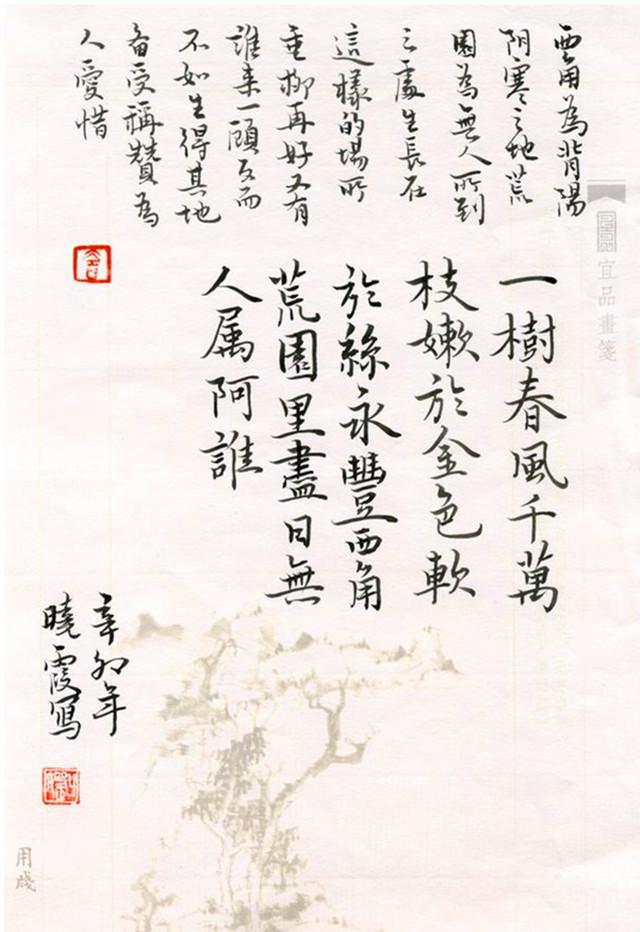 西角為背陽
阴寒之地荒
園為無人所到
之處生長在
這樣的場所
垂柳再好又有
誰来一顧反而
不如生得其地
备受稱贊為
人愛惜
一樹春風千萬
枝嫩於金色軟
於絲永豐西角
荒園里盡日無
人属阿誰
辛卯年
曉霞寫
宜品畫箋
用牋